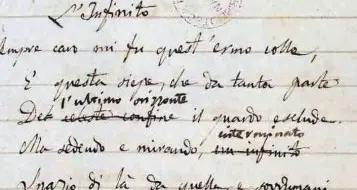 L'Infinito
Sempre caro mi fu quest'ermo colle,
E questa siepe, che da tanta parte
l'ultimo orizzonte
Del celeste confine il guardo esclude.
interminato
Ma sedendo e mirando, un infinito
Spazio di là da quella, e sovrumani